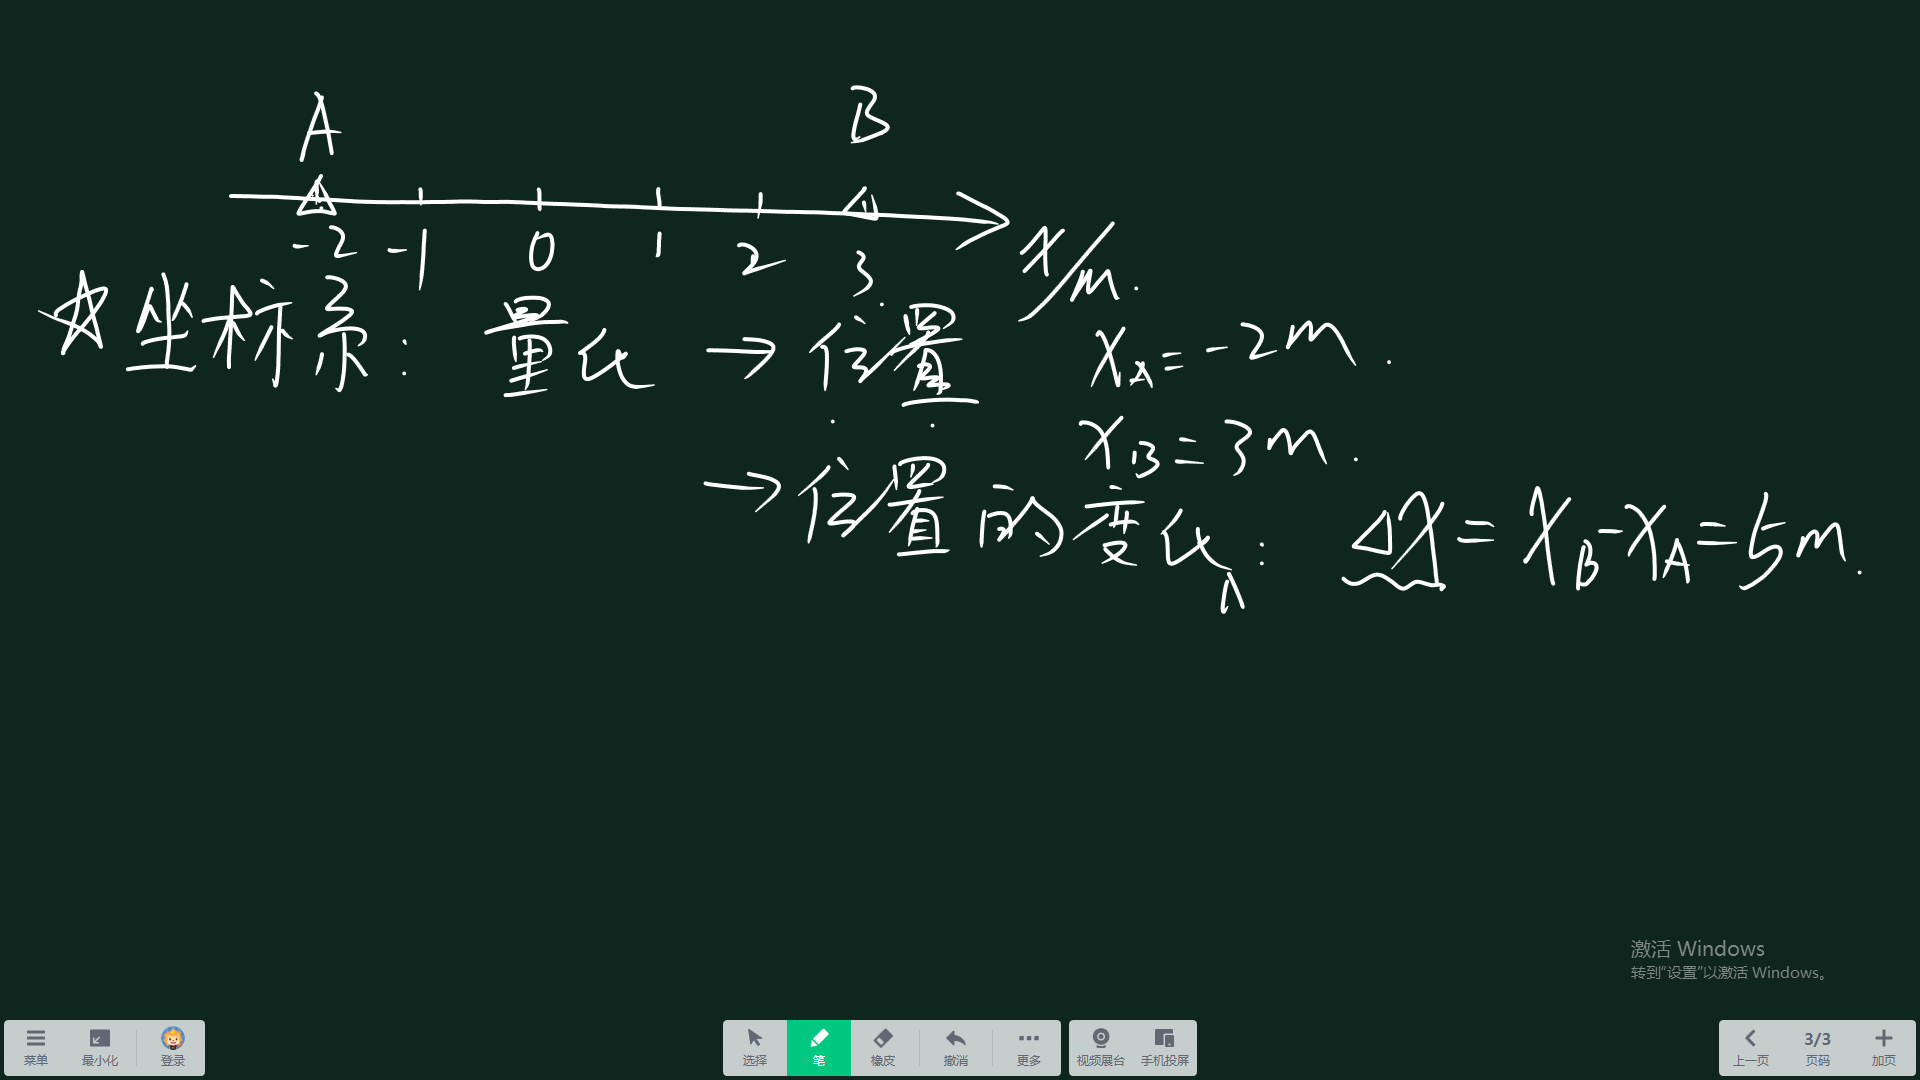 A B
-2 -1 0 1 2 3 x/m.
☆坐标系: 量化 → 位置 xA = -2m.
xB = 3m.
→ 位置的变化: Δx = xB - xA = 5m.
激活 Windows
转到“设置”以激活 Windows。
菜单 最小化 登录 选择 笔 橡皮 撤消 更多 视频展台 手机投屏 上一页 3/3 页码 加页